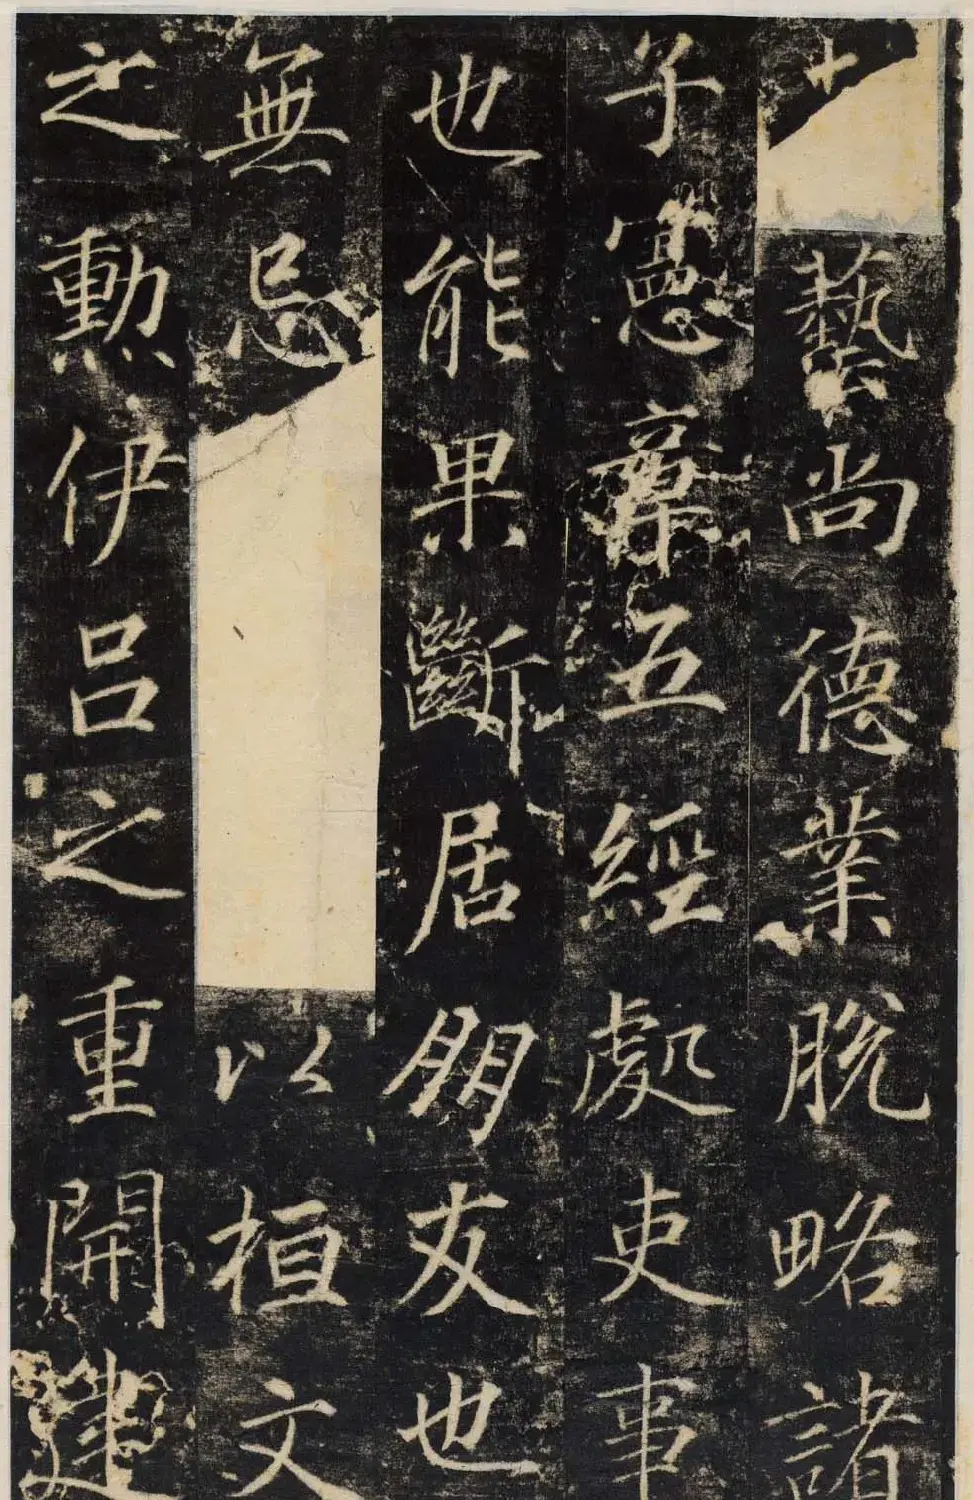 藝尚德業脫略諸
子憲五經處吏事
也能果斷居朋友也
無忌以桓文
之勳伊呂之重開建